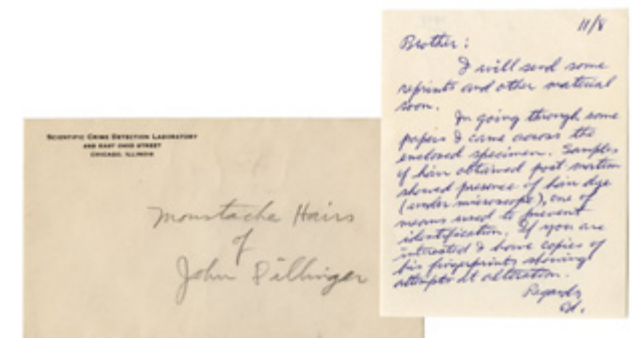 SCIENTIFIC CRIME DETECTION LABORATORY
EAST OHIO STREET
CHICAGO, ILLINOIS
Moustache Hairs
of
John Dillinger
11/8
Brother:
I will send some
reprints and other material
soon.
In going through some
papers I came across the
enclosed specimen. Samples
of hair obtained post mortem
showed presence of hair dye
(under microscope), one of
means used to prevent
identification. If you are
interested I have copies of
his fingerprints showing
attempts at alteration.
Regards